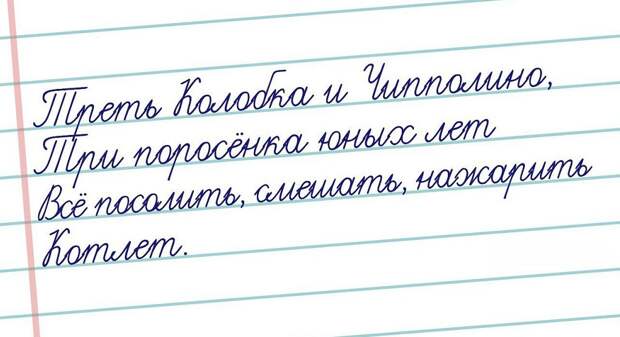 Треть Колобка и Чипполино,
Три поросёнка юных лет
Всё посолить, смешать, нажарить
Котлет.